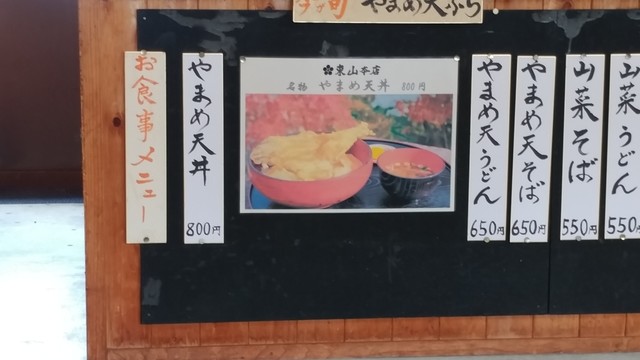 今が旬 やまめ天ぷら
お食事メニュー
やまめ天丼 800円
東山本店
名物 やまめ天丼 800円
やまめ天うどん 650円
やまめ天そば 650円
山菜そば 550円
山菜うどん 550円